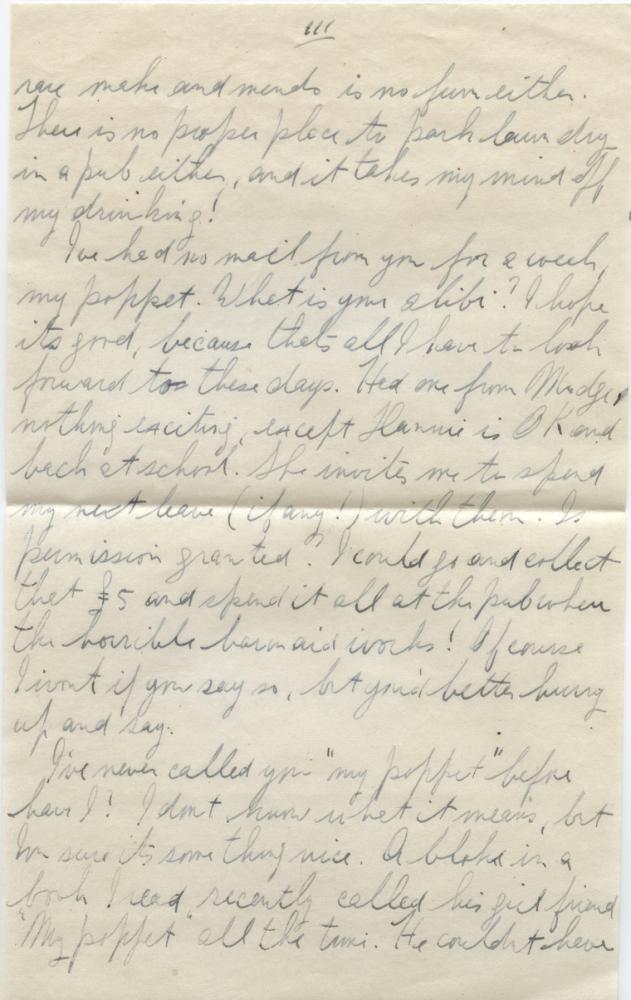 III
rare make and mends is no fun either.
There is no proper place to park laundry
in a pub either, and it takes my mind off
my drinking!
I've had no mail from you for a week,
my poppet. What is your alibi? I hope
its good, because thats all I have to look
forward to these days. Had one from Madge,
nothing exciting, except Hannie is OK and
back at school. She invites me to spend
my next leave (if any!) with them. Is
permission granted? I could go and collect
that £5 and spend it all at the pub where
the horrible barmaid works! Of course
I wont if you say so, but you'd better hurry
up and say.
I've never called you "my poppet" before
have I? I don't know what it means, but
I'm sure its something nice. A bloke in a
book I read recently called his girl friend
"My poppet" all the time. He couldn't have